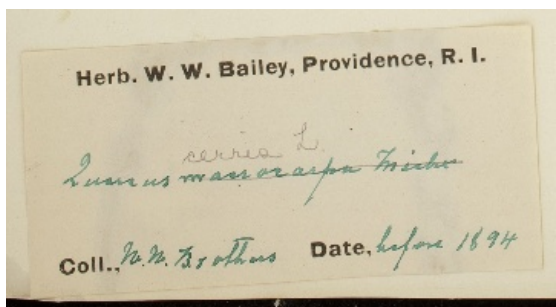 Herb. W. W. Bailey, Providence, R. I.
cerris L.
Quercus macrocarpa Michx
Coll., W. W. Brothers Date, before 1894